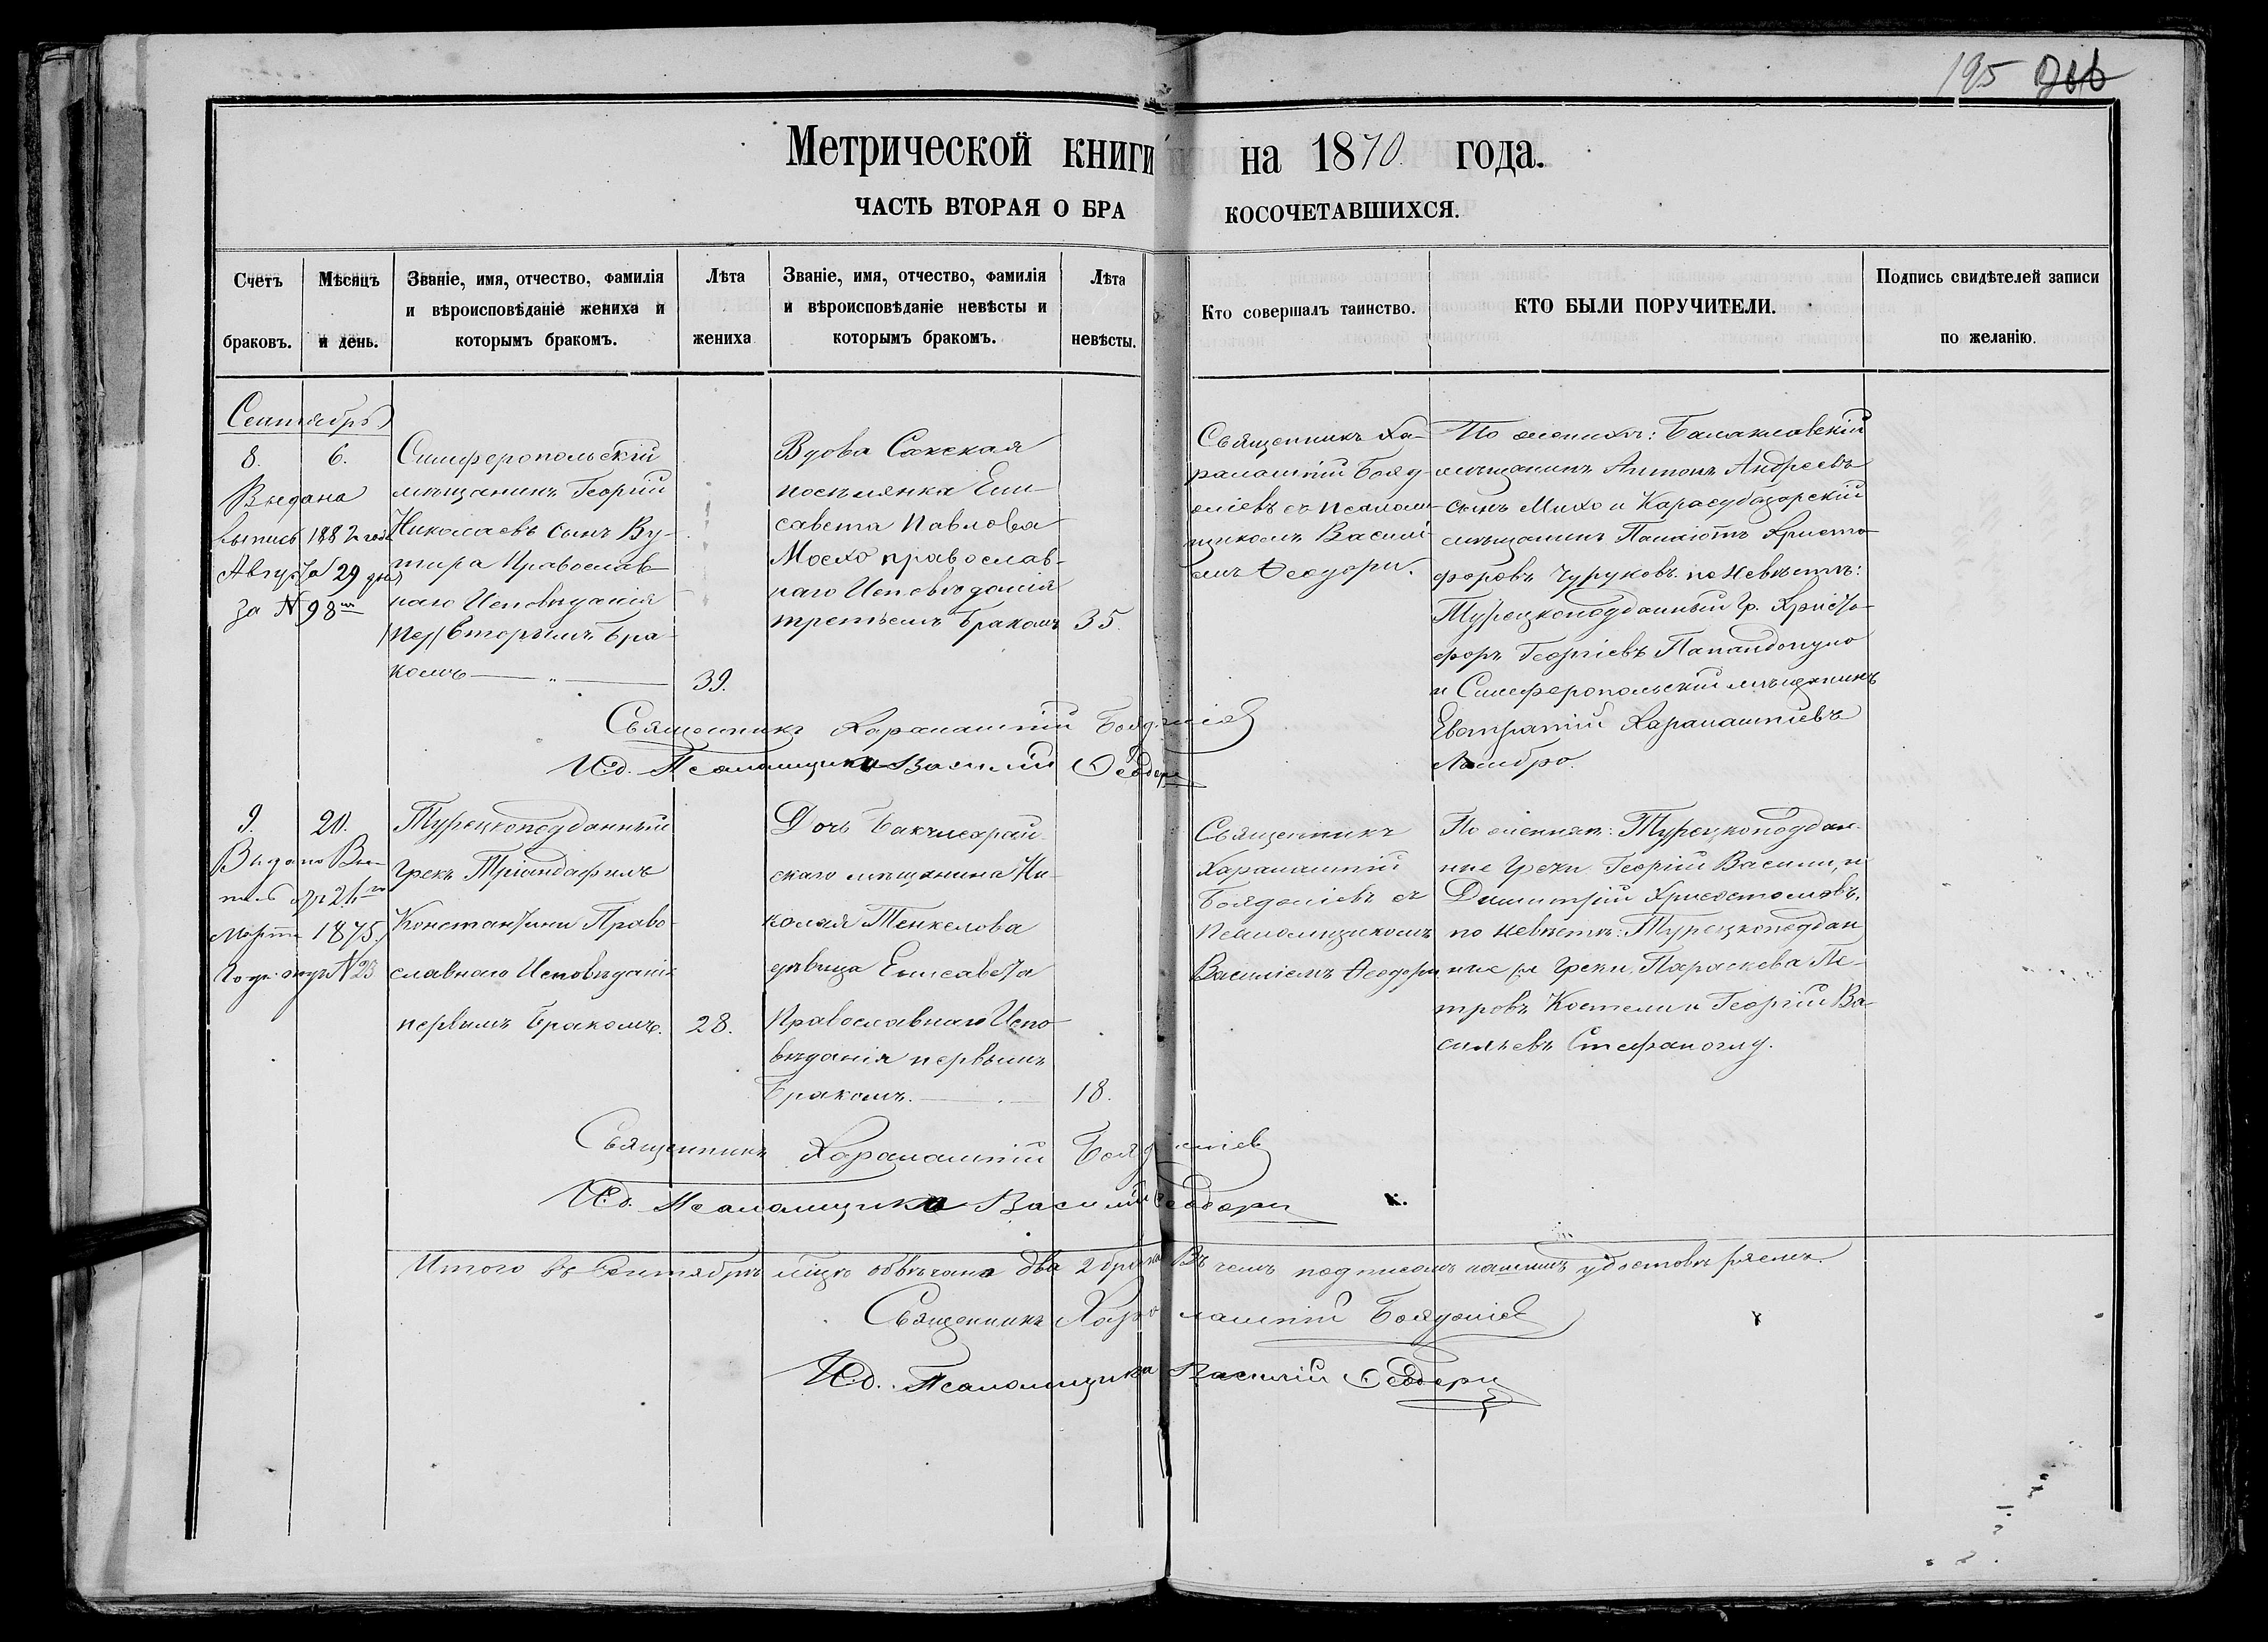 195
Метрической книги на 1870 года.
ЧАСТЬ ВТОРАЯ О БРАКОСОЧЕТАВШИХСЯ.
Счетъ
браковъ.
Мѣсяцъ
и день.
Званіе, имя, отчество, фамилія
и вѣроисповѣданіе жениха и
которымъ бракомъ.
Лѣта
жениха
Званіе, имя, отчество, фамилія
и вѣроисповѣданіе невѣсты и
которымъ бракомъ.
Лѣта
невѣсты.
Кто совершалъ таинство.
КТО БЫЛИ ПОРУЧИТЕЛИ.
Подпись свидѣтелей записи
по желанію.
Сентябрь
8.
6.
Выдана
выпись 1882 года
Августа 29 дня
за № 98
Симферопольскій
мѣщанинъ Георгій
Николаевъ сынъ Ву-
тира Православ-
наго Исповѣданія
/пер/ вторымъ бра-
комъ
39.
Вдова Сакская
поселянка Ели-
савета Павлова
Моско православ-
наго Исповѣданія
третьемъ бракомъ
35.
Священникъ Ха-
ралампій Бояд-
жіевъ съ псалом-
щикомъ Василі-
емъ Ѳеодори.
По женихѣ: Балаклавскій
мѣщанинъ Антонъ Андреевъ
сынъ Михо и Карасубазарскій
мѣщанинъ Панаіотъ Христо-
форовъ Чуруковъ. по Невѣстѣ:
Турецкоподданный Гр. Христо-
форъ Георгіевъ Папандопуло
и Симферопольскій мѣщанинъ
Евстратій Харалампіевъ
Ламбро.
Священникъ Харалампій Бояджіев
И.д. Псаломщика Василій Ѳеодори
9.
20.
Выдано Вы-
Марта 1875
№ 23
Турецкоподданный
Грекъ Тріандафилъ
Константини Право-
славнаго Исповѣданія
первымъ бракомъ.
28.
Дочь Бакчисарай-
скаго мѣщанина Ни-
колая Тенкелова
дѣвица Елисавета
Православнаго Испо-
вѣданія первымъ
бракомъ.
18.
Священникъ
Харалампій
Бояджіевъ съ
Псаломщикомъ
Василіемъ Ѳеодори
По женихѣ: Турецкоподдан-
ные Греки Георгій Василии, и
Димитрій Хрисостомовъ.
по Невѣстѣ: Турецкоподдан
ные Греки. Параскева Пе-
тровъ Костели и Георгій Ва-
сильевъ Стефаноглу.
Священникъ Харалампій Бояджіев
И.д. Псаломщика Василій Ѳеодори
Итого въ Сентябрѣ мѣсцѣ обвѣнчано два 2 брака Въ чемъ подписомъ нашимъ удостовѣряемъ.
Священникъ Харалампій Бояджіев
И.д. Псаломщика Василій Ѳеодори